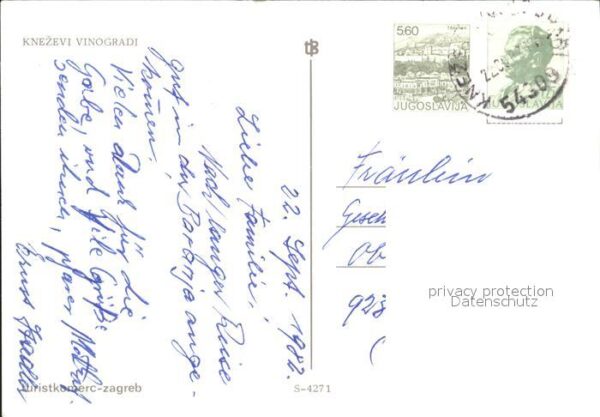 KNEŽEVI VINOGRADI
tB
5.60
JUGOSLAVIJA
JUGOSLAVIJA
54309
22. Sept. 1982.
Liebe Familie!
Nach langer Reise
gut in der Baranja ange-
kommen!
Vielen Dank für die
Gaben, und viele Grüße
senden ihnen, pfarer
Ernst
Fräulein
Gesch
Ob
923
privacy protection
Datenschutz
turistkomerc-zagreb
S-4271